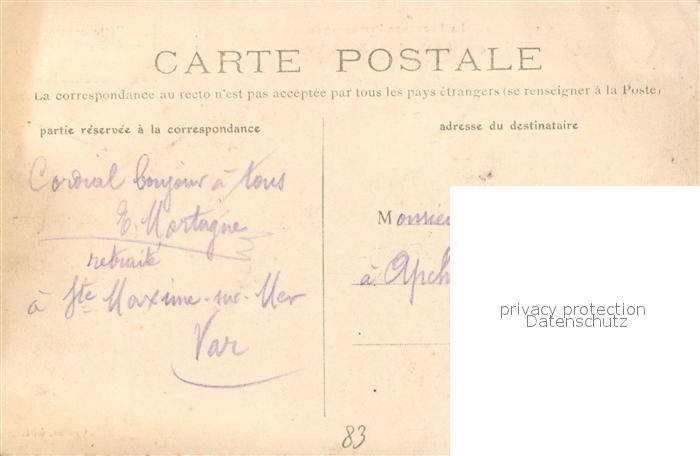 CARTE POSTALE
La correspondance au recto n'est pas acceptée par tous les pays étrangers (se renseigner à la Poste)
partie réservée à la correspondance
adresse du destinataire
Cordial bonjour à tous
E. Mortagne
retraité
à Ste Maxime-sur-Mer
Var
Monsieu
à Apch
privacy protection
Datenschutz
83